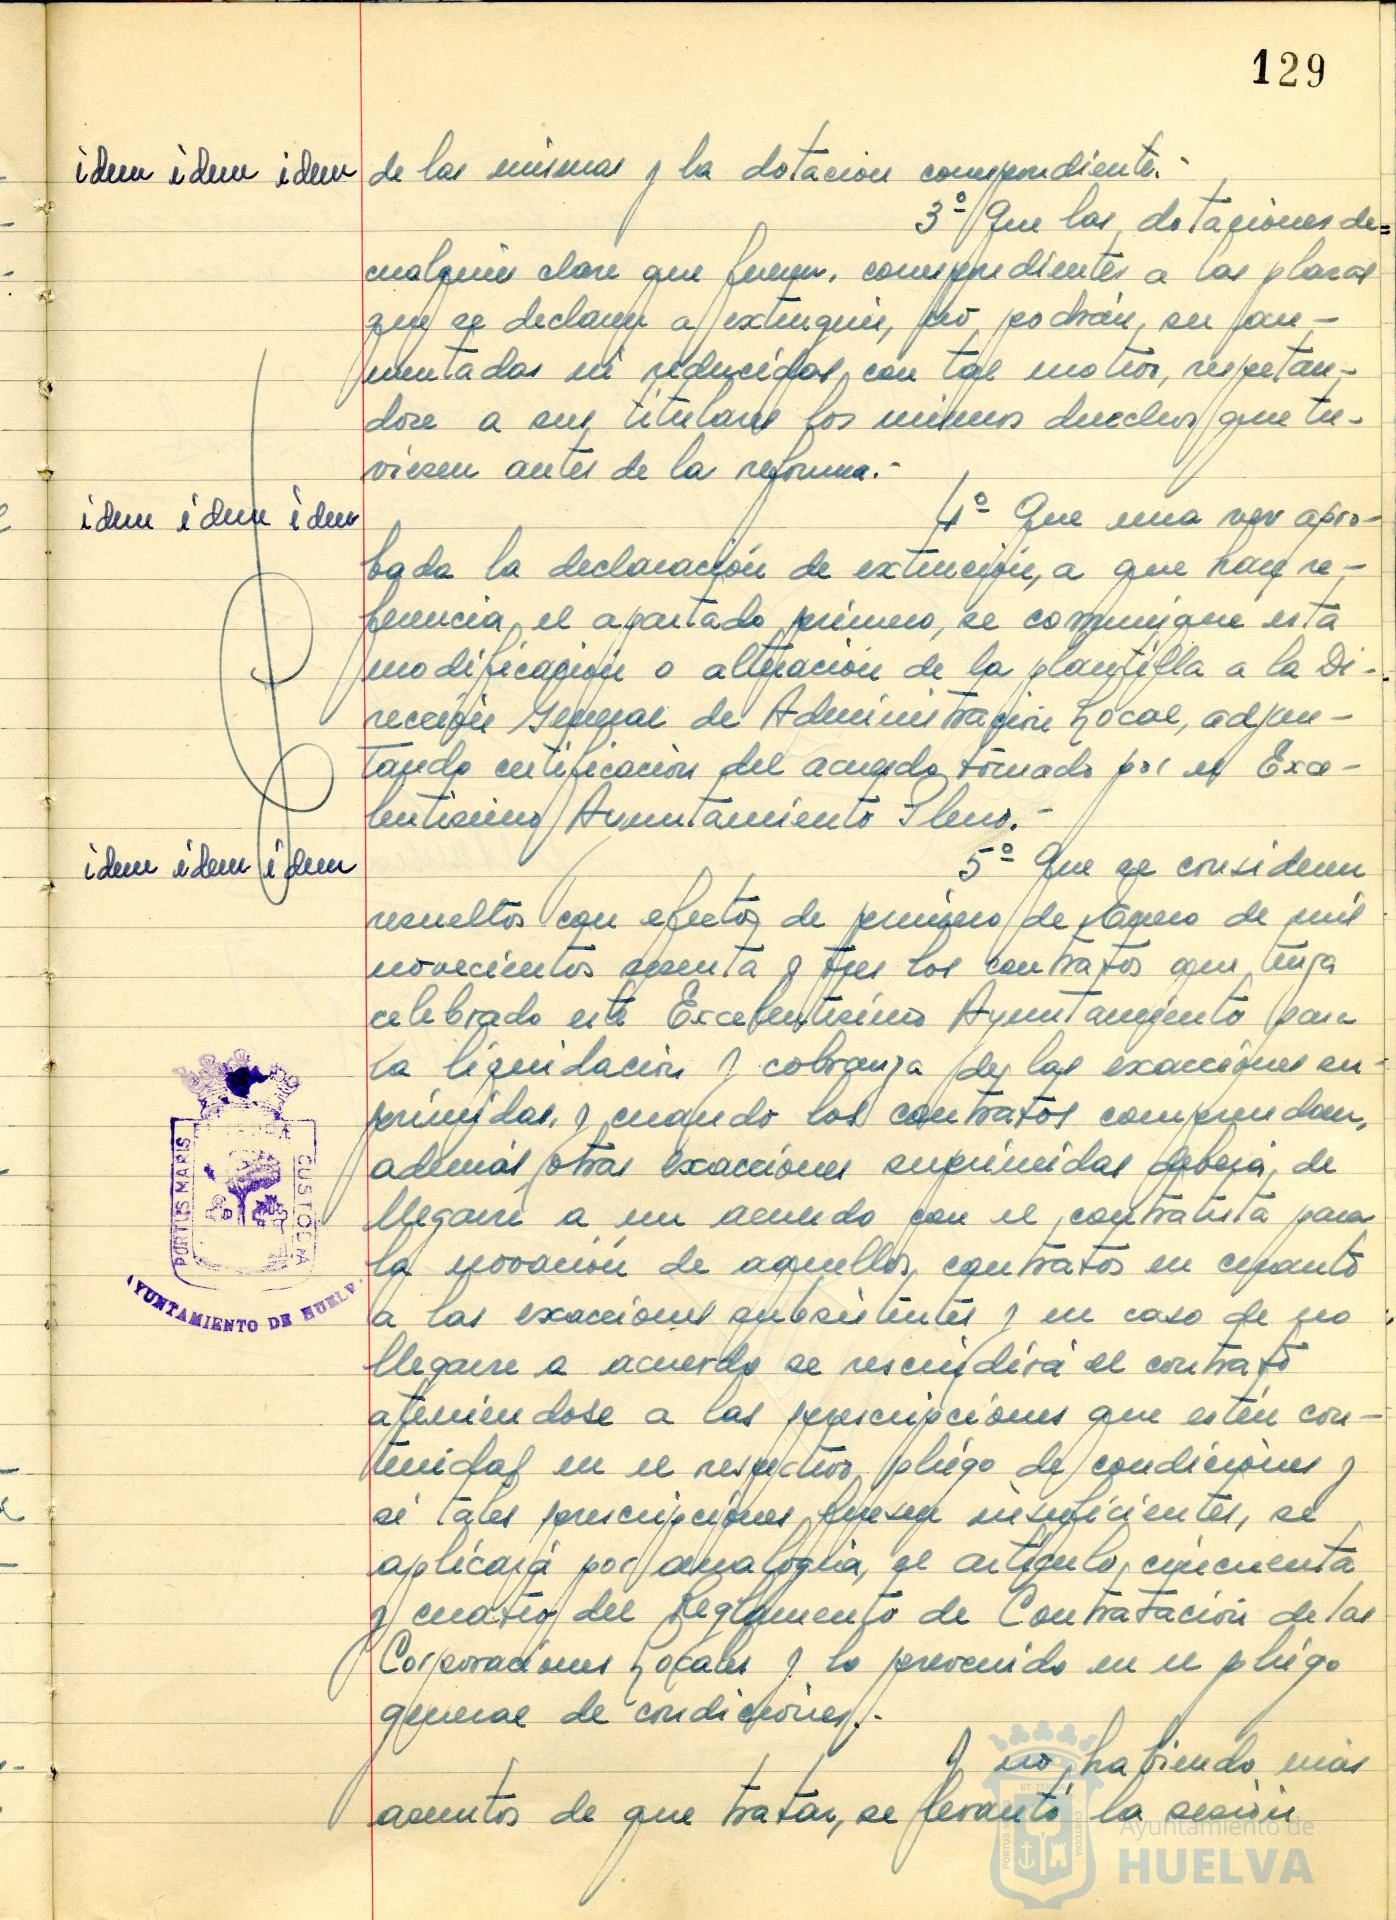 129
idem idem idem
de las mismas y la dotación correspondiente.-
3º Que las dotaciones de=
cualquier clase que fueren, correspondientes a las plazas
que se declaren a extinguir, no podrán, ser au-
mentadas ni reducidas, con tal motivo, respetan-
dose a sus titulares los mismos derechos que tu-
viesen antes de la reforma.-
idem idem idem
4º Que una vez apro-
bada la declaración de extinción, a que hace re-
ferencia el apartado primero, se comunique esta
modificación o alteración de la plantilla a la Di-
rección General de Administración Local, adjun-
tando certificación del acuerdo tomado por el Exce-
lentisimo Ayuntamiento Pleno.-
idem idem idem
5º Que se consideren
resueltos con efectos de primero de Enero de mil
novecientos sesenta y tres los contratos que tenga
celebrado este Excelentisimo Ayuntamiento para
la liquidación y cobranza de las exacciones su-
primidas, y cuando los contratos comprendan,
además, otras exacciones suprimidas deberá, de
llegarse a un acuerdo con el contratista para
la novación de aquellos, contratos en cuanto
a las exacciones subsistentes y en caso de no
llegarse a acuerdo se rescindirá el contrato
ateniendose a las prescripciones que estén con-
tenidas en el respectivo pliego de condiciones y
si tales prescripciones fuesen insuficientes, se
aplicará por analogia, el artículo, cincuenta
y cuatro del Reglamento de Contratación de las
Corporaciones Locales y lo prevenido en el pliego
general de condiciones.-
Y no habiendo más
asuntos de que tratar, se levantó la sesión
PORTUS MARIS
CUSTODIA
AYUNTAMIENTO DE HUELVA
Ayuntamiento de
HUELVA